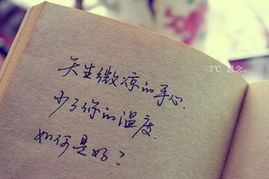 天生微凉的手心
少了你的温度
如何是好？